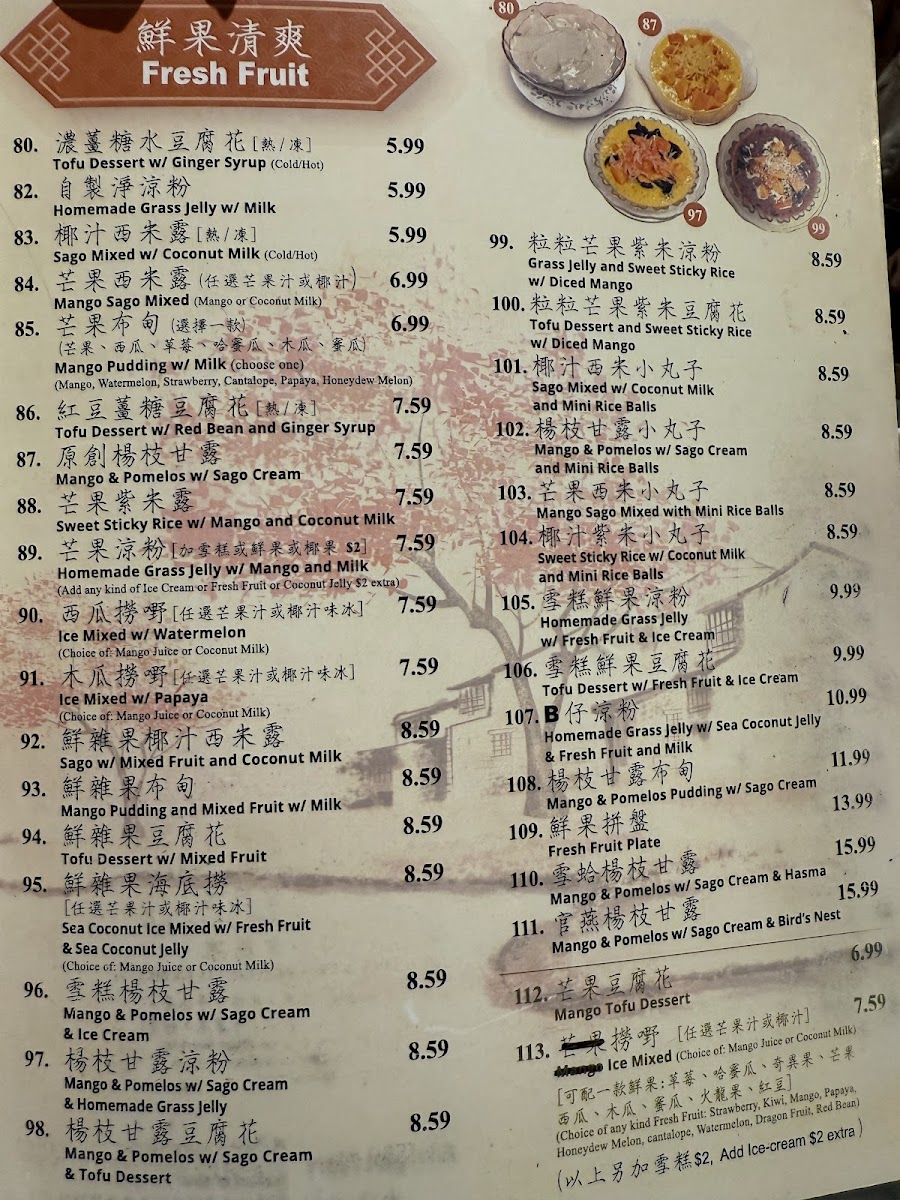 鮮果清爽
Fresh Fruit
80. 濃薑糖水豆腐花 [熱/凍] 5.99
Tofu Dessert w/ Ginger Syrup (Cold/Hot)
82. 自製淨涼粉 5.99
Homemade Grass Jelly w/ Milk
83. 椰汁西米露 [熱/凍] 5.99
Sago Mixed w/ Coconut Milk (Cold/Hot)
84. 芒果西米露 (任選芒果汁或椰汁) 6.99
Mango Sago Mixed (Mango or Coconut Milk)
85. 芒果布甸 (選擇一款) 6.99
(芒果、西瓜、草莓、哈蜜瓜、木瓜、蜜瓜)
Mango Pudding w/ Milk (choose one)
(Mango, Watermelon, Strawberry, Cantalope, Papaya, Honeydew Melon)
86. 紅豆薑糖豆腐花 [熱/凍] 7.59
Tofu Dessert w/ Red Bean and Ginger Syrup
87. 原創楊枝甘露 7.59
Mango & Pomelos w/ Sago Cream
88. 芒果紫米露 7.59
Sweet Sticky Rice w/ Mango and Coconut Milk
89. 芒果涼粉 [加雪糕或鮮果或椰果 $2] 7.59
Homemade Grass Jelly w/ Mango and Milk
(Add any kind of Ice Cream or Fresh Fruit or Coconut Jelly $2 extra)
90. 西瓜撈嘢 [任選芒果汁或椰汁味冰] 7.59
Ice Mixed w/ Watermelon
(Choice of: Mango Juice or Coconut Milk)
91. 木瓜撈嘢 [任選芒果汁或椰汁味冰] 7.59
Ice Mixed w/ Papaya
(Choice of: Mango Juice or Coconut Milk)
92. 鮮雜果椰汁西米露 8.59
Sago w/ Mixed Fruit and Coconut Milk
93. 鮮雜果布甸 8.59
Mango Pudding and Mixed Fruit w/ Milk
94. 鮮雜果豆腐花 8.59
Tofu Dessert w/ Mixed Fruit
95. 鮮雜果海底撈 8.59
[任選芒果汁或椰汁味冰]
Sea Coconut Ice Mixed w/ Fresh Fruit
& Sea Coconut Jelly
(Choice of: Mango Juice or Coconut Milk)
96. 雪糕楊枝甘露 8.59
Mango & Pomelos w/ Sago Cream
& Ice Cream
97. 楊枝甘露涼粉 8.59
Mango & Pomelos w/ Sago Cream
& Homemade Grass Jelly
98. 楊枝甘露豆腐花 8.59
Mango & Pomelos w/ Sago Cream
& Tofu Dessert
80
87
97
99
99. 粒粒芒果紫米涼粉 8.59
Grass Jelly and Sweet Sticky Rice
w/ Diced Mango
100. 粒粒芒果紫米豆腐花 8.59
Tofu Dessert and Sweet Sticky Rice
w/ Diced Mango
101. 椰汁西米小丸子 8.59
Sago Mixed w/ Coconut Milk
and Mini Rice Balls
102. 楊枝甘露小丸子 8.59
Mango & Pomelos w/ Sago Cream
and Mini Rice Balls
103. 芒果西米小丸子 8.59
Mango Sago Mixed with Mini Rice Balls
104. 椰汁紫米小丸子 8.59
Sweet Sticky Rice w/ Coconut Milk
and Mini Rice Balls
105. 雪糕鮮果涼粉 9.99
Homemade Grass Jelly
w/ Fresh Fruit & Ice Cream
106. 雪糕鮮果豆腐花 9.99
Tofu Dessert w/ Fresh Fruit & Ice Cream
107. B仔涼粉 10.99
Homemade Grass Jelly w/ Sea Coconut Jelly
& Fresh Fruit and Milk
108. 楊枝甘露布甸 11.99
Mango & Pomelos Pudding w/ Sago Cream
109. 鮮果拼盤 13.99
Fresh Fruit Plate
110. 雪蛤楊枝甘露 15.99
Mango & Pomelos w/ Sago Cream & Hasma
111. 官燕楊枝甘露 15.99
Mango & Pomelos w/ Sago Cream & Bird's Nest
112. 芒果豆腐花 6.99
Mango Tofu Dessert
113. 芒果撈嘢 [任選芒果汁或椰汁] 7.59
Mango Ice Mixed (Choice of: Mango Juice or Coconut Milk)
[可配一款鮮果:草莓、哈蜜瓜、奇異果、芒果
西瓜、木瓜、蜜瓜、火龍果、紅豆]
(Choice of any kind Fresh Fruit: Strawberry, Kiwi, Mango, Papaya,
Honeydew Melon, cantalope, Watermelon, Dragon Fruit, Red Bean)
(以上另加雪糕$2, Add Ice-cream $2 extra)